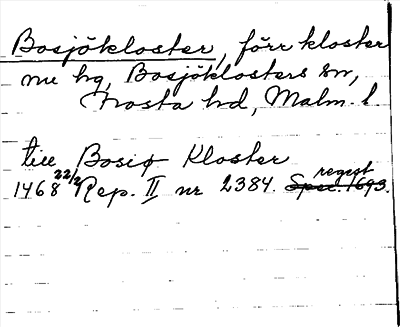 Bosjökloster, förr kloster
nu hg, Bosjöklosters sn,
Frosta hd, Malm. l
till Bosiø Kloster
1468 22/2 Rep. II nr 2384. regest Spec. 1693.